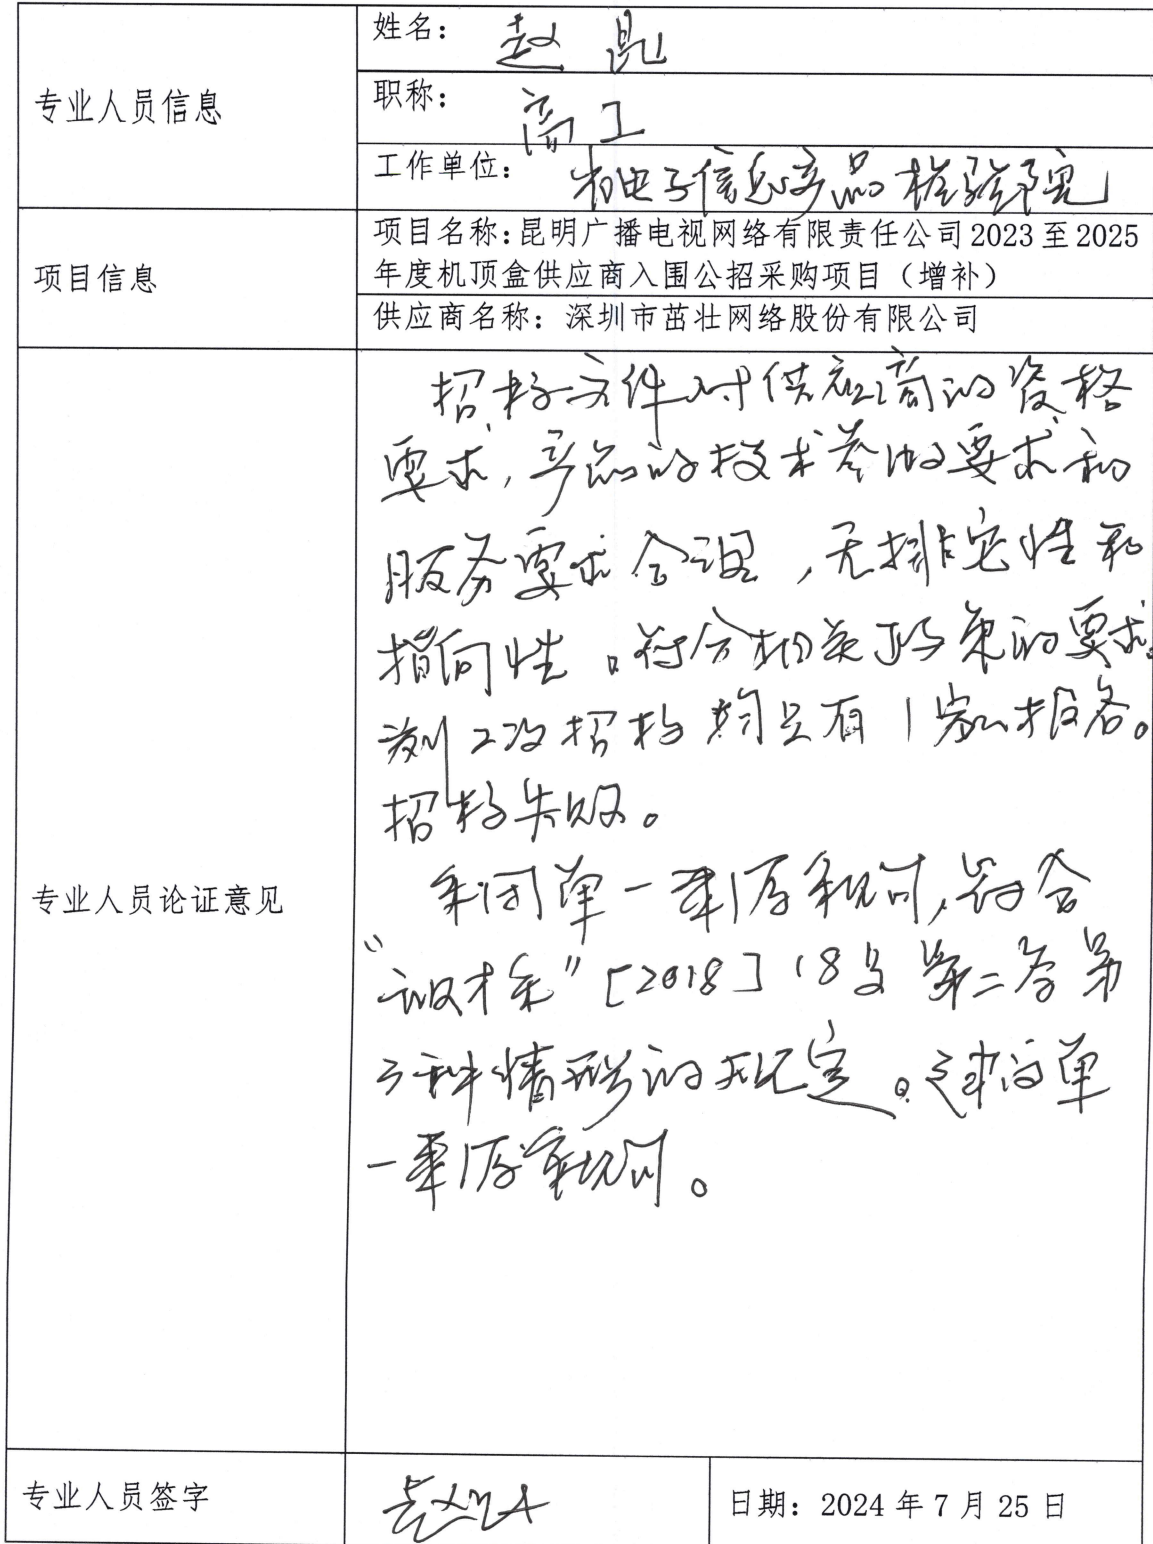 姓名： 赵昆
专业人员信息
职称： 高工
工作单位： 电子信息产品检验院
项目信息
项目名称：昆明广播电视网络有限责任公司2023至2025
年度机顶盒供应商入围公招采购项目（增补）
供应商名称：深圳市茁壮网络股份有限公司
专业人员论证意见
招标文件对供应商的资格
要求，产品的技术参数要求和
服务要求合理，无排它性和
指向性。符合相关政策的要求。
2次招标均只有1家报名。
招标失败。
采用单一来源采购时，符合
"议采"[2018]18号第二条第
三种情形的规定。建议单
一来源采购。
专业人员签字
日期：2024年7月25日